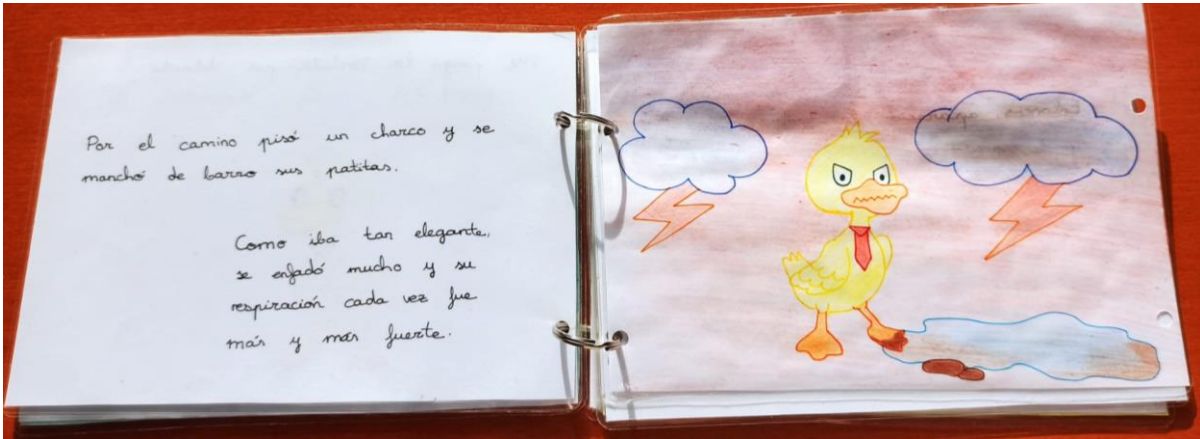 Por el camino pisó un charco y se
manchó de barro sus patitas.
Como iba tan elegante,
se enfadó mucho y su
respiración cada vez fue
más y más fuerte.